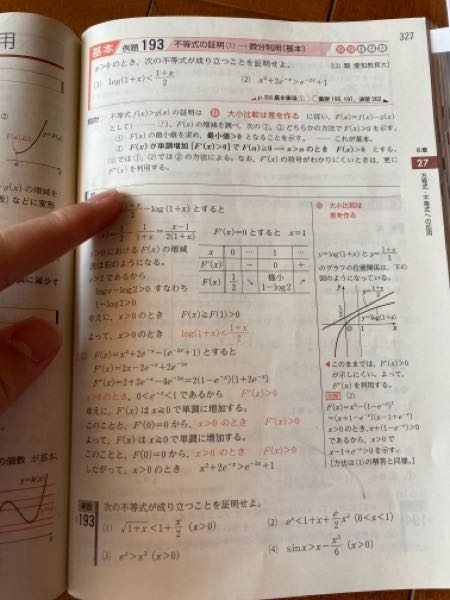 327
基本 例題 193 不等式の証明(1) … 微分利用(基本)
x>0 のとき,次の不等式が成り立つことを証明せよ。
(1) log(1+x)<(1+x)/2
(2) x²+2e⁻ˣ>e⁻²ˣ+1
[(2) 類 愛知教育大]
基本事項
重要 195, 197, 演習 202
指針 不等式 f(x)>g(x) の証明は 大小比較は差を作る に従い,F(x)=f(x)-g(x)
として F(x) の増減を調べ,次の①,②どちらかの方法で F(x)>0 を示す。
① F(x) の最小値を求め,最小値>0 となることを示す。 これが基本。
② F(x) が単調増加 [F'(x)>0] で F(a)≧0 ⟹ x>a のとき F(x)>0 とする。
(1) では①,(2) では②の方法による。なお,F'(x) の符号がわかりにくいときは,更に
F''(x) を利用する。
6章
27
方程式・不等式への応用
-log(1+x) とすると
1/(1+x)=(x-1)/(2(1+x)) F'(x)=0 とすると x=1
x>0 における F(x) の増減
表は右のようになる。
x 0 … 1 …
F'(x) - 0 +
F(x) 1/2 ↘ 極小 1-log2 ↗
e>2 であるから
log e-log2>0 すなわち
1-log2>0
ゆえに,x>0 のとき F(x)≧F(1)>0
よって,x>0 のとき log(1+x)<(1+x)/2
F(x)=x²+2e⁻ˣ-(e⁻²ˣ+1) とすると
F'(x)=2x-2e⁻ˣ+2e⁻²ˣ
F''(x)=2+2e⁻ˣ-4e⁻²ˣ=2(1-e⁻ˣ)(1+2e⁻ˣ)
x>0 のとき,0<e⁻ˣ<1 であるから F''(x)>0
ゆえに,F'(x) は x≧0 で単調に増加する。
このことと,F'(0)=0 から,x>0 のとき F'(x)>0
よって,F(x) は x≧0 で単調に増加する。
このことと,F(0)=0 から,x>0 のとき F(x)>0
したがって,x>0 のとき x²+2e⁻ˣ>e⁻²ˣ+1
大小比較は
差を作る
y=log(1+x) と y=(1+x)/2
のグラフの位置関係は,下の
図のようになっている。
y
y=(1+x)/2
y=log(1+x)
0 1 x
◀このままでは,F'(x)>0
が示しにくい。よって,
F''(x) を利用する。
別解 (2)
F(x)=x²-(1-e⁻ˣ)²
=(x+1-e⁻ˣ)(x-1+e⁻ˣ)
x>0 のとき,x+(1-e⁻ˣ)>0
であるから,x>0 で
x-1+e⁻ˣ>0 を示す。
[方法は(1)の解答と同様。]
練習 193 次の不等式が成り立つことを証明せよ。
(1) √(1+x)<1+x/2 (x>0)
(2) eˣ<1+x+(e/2)x² (0<x<1)
(3) eˣ>x² (x>0)
(4) sin x>x-x³/6 (x>0)